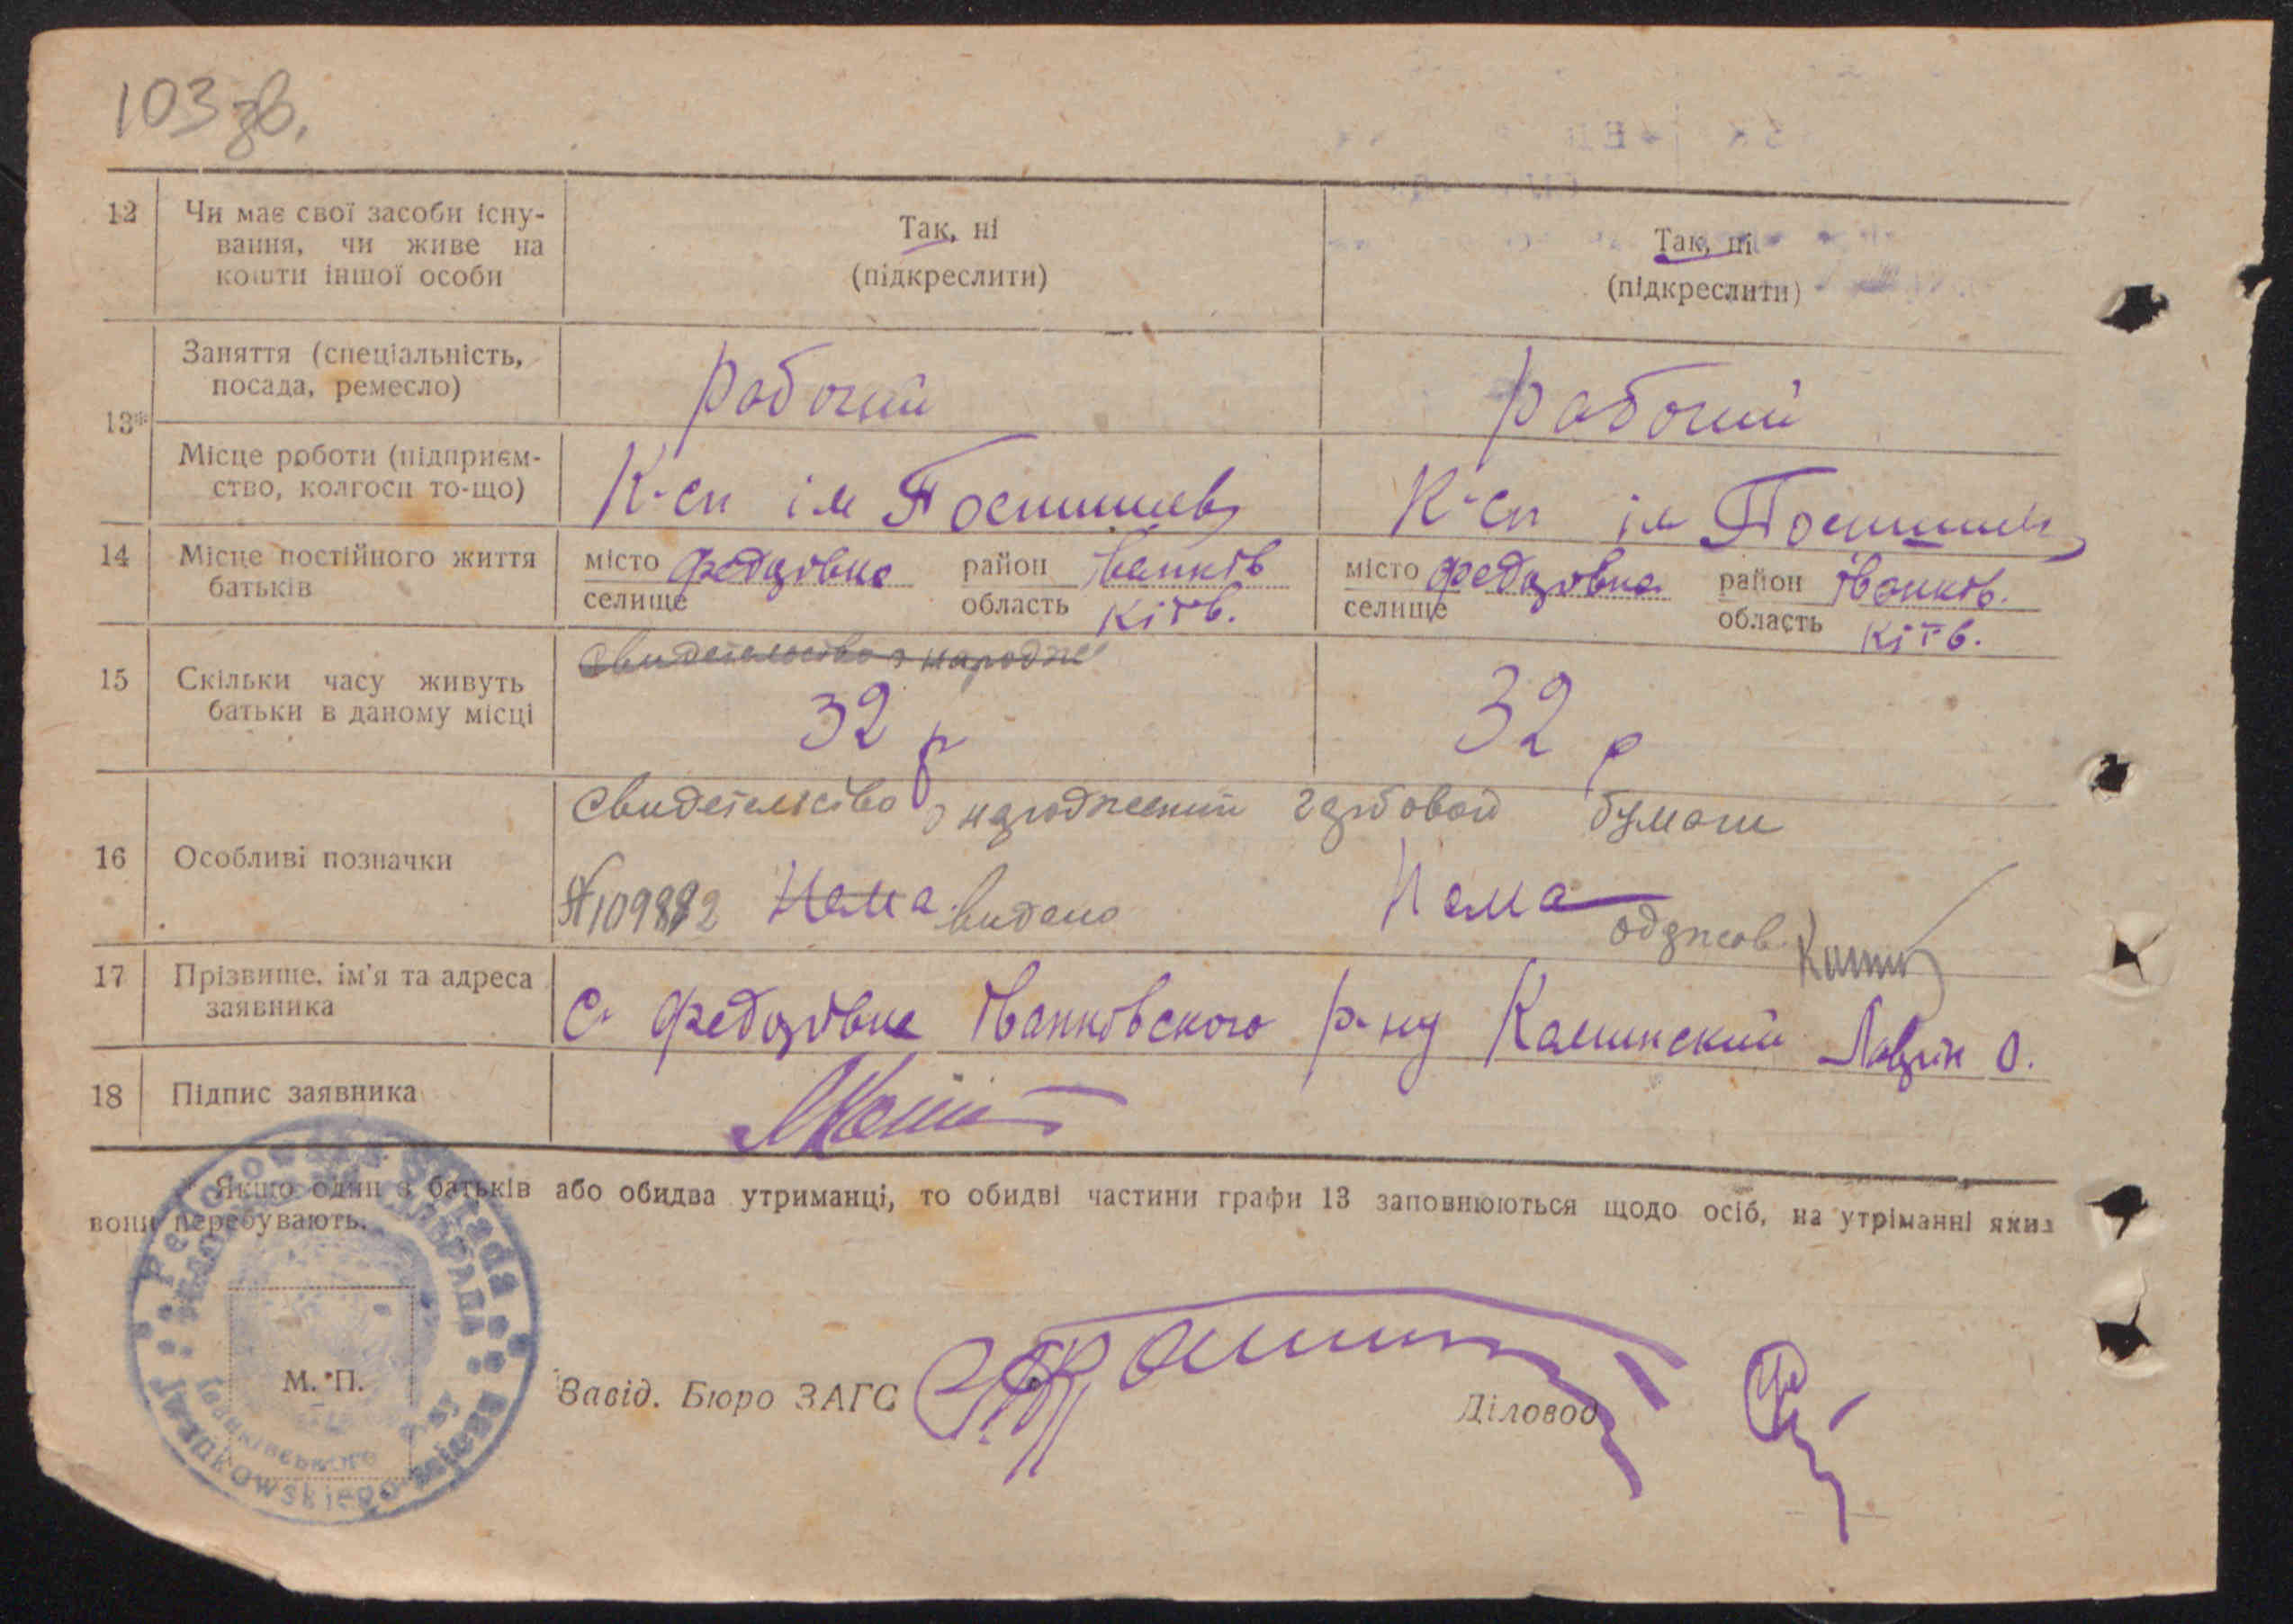 103 зв.
12 Чи має свої засоби існу-
вання, чи живе на
кошти іншої особи
Так, ні
(підкреслити)
Так, ні
(підкреслити)
13*
Заняття (спеціальність,
посада, ремесло)
рабочий
рабочий
Місце роботи (підприєм-
ство, колгосп то-що)
К-сп ім Постишев
К-сп ім Постишев
14 Місце постійного життя
батьків
місто Федорівка район Іванків
селище область Київ.
місто Федорівка район Іванків.
селище область Київ.
15 Скільки часу живуть
батьки в даному місці
Свидетельство о народже
32 р
32 р
16 Особливі позначки
Свидетельство о народжений гербовой бумаги
№109882 Нама видано Нама
17 Прізвище, ім'я та адреса
заявника
С. Федорівка Іванківского р-ну Калинский Лаврін О.
18 Підпис заявника
* Якщо один з батьків або обидва утриманці, то обидві частини графи 13 заповнюються щодо осіб, на утріманні яких
вони перебувають.
М. П.
Завід. Бюро ЗАГС
Діловод